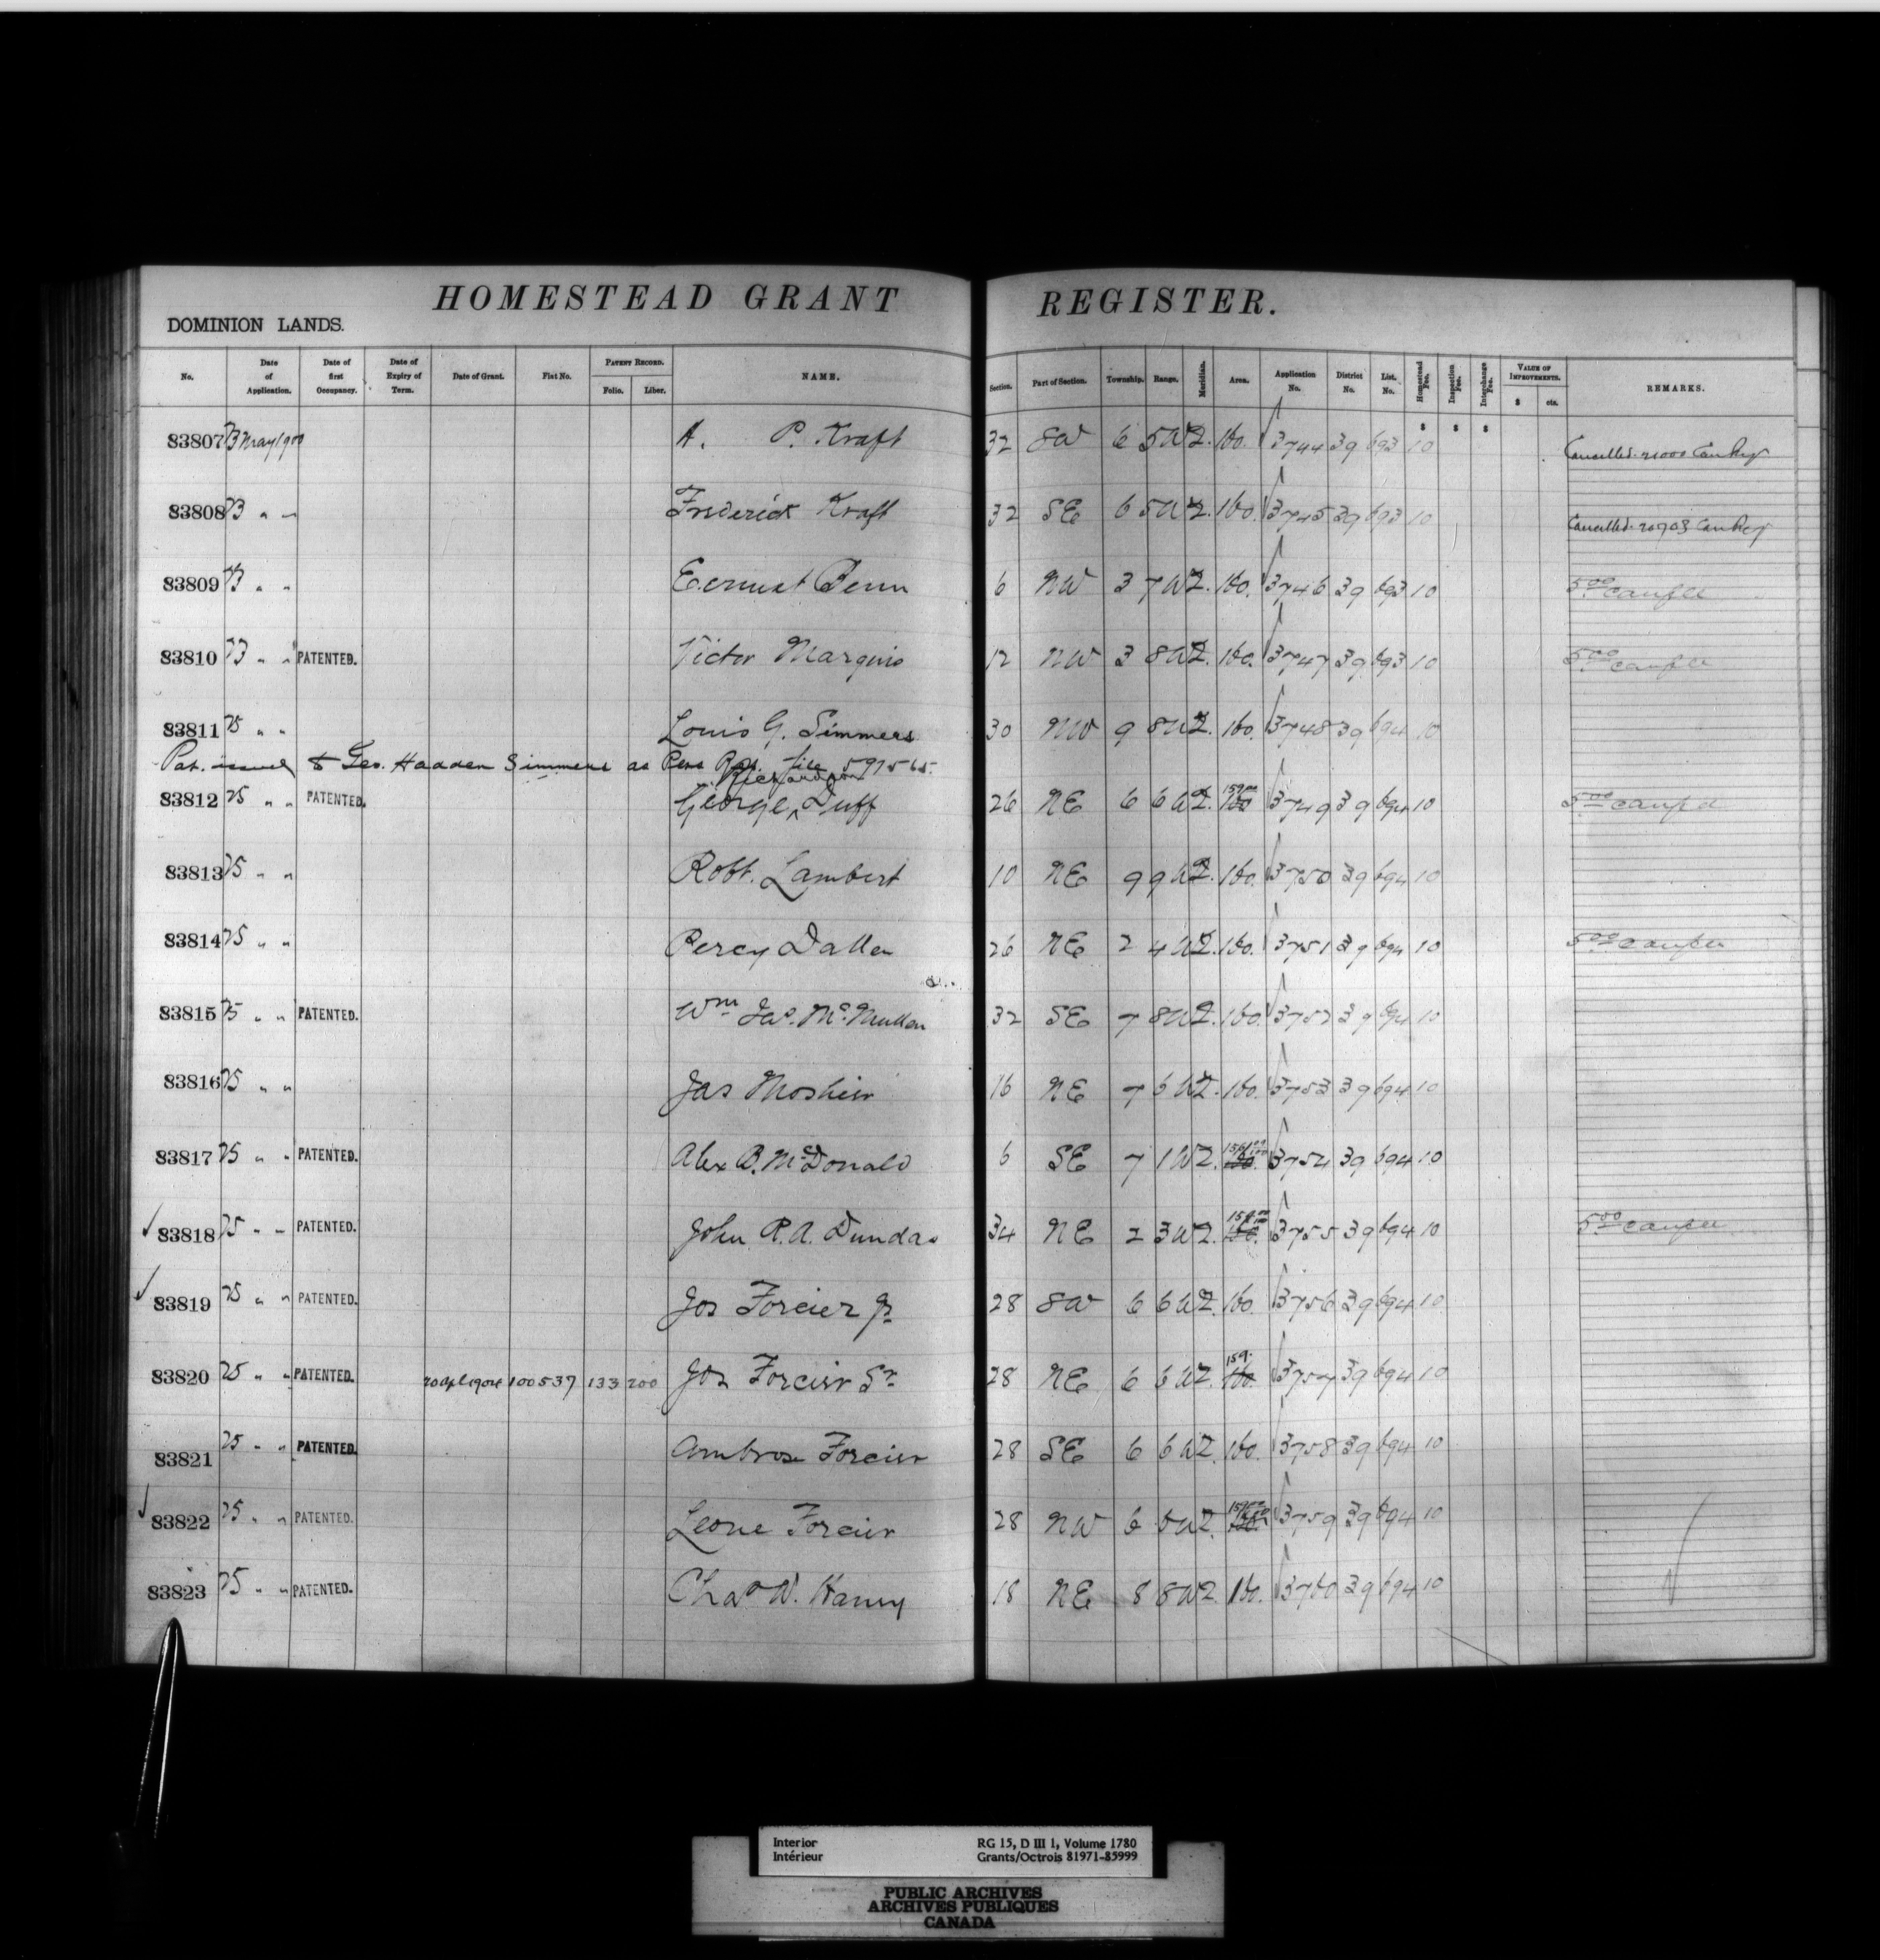 HOMESTEAD GRANT REGISTER.
DOMINION LANDS.
No. Date of Application. Date of first Occupancy. Date of Expiry of Term. Date of Grant. Fiat No. PATENT RECORD. Folio. Liber. NAME. Section. Part of Section. Township. Range. Meridian. Area. Application No. District No. List. No. Homestead Fee. Inspection Fee. Interchange Fee. VALUE OF IMPROVEMENTS. $ cts. REMARKS.
$ $ $
83807 23 May 1900 A. P. Kraft 32 SW 6 5 W 2. 160. 3744 39 693 10 Cancelled. 21000 Can Reg
83808 23 " " Frederick Kraft 32 SE 6 5 W 2. 160. 3745 39 693 10 Cancelled. 20703 Can Reg
83809 23 " " Eernest Benn 6 NW 3 7 W 2. 160. 3746 39 693 10 5.00
83810 23 " " PATENTED. Victor Marquis 12 NW 3 8 W 2. 160. 3747 39 693 10 5.00
83811 25 " " Louis G. Simmers 30 NW 9 8 W 2. 160. 3748 39 694 10
Pat. issued to Geo. Hadden Simmers as Pers Rep. file 597565.
Richardson
83812 25 " " PATENTED. George ^ Duff 26 NE 6 6 W 2. 159.00 160 3749 39 694 10 5.00
83813 25 " " Robt. Lambert 10 NE 9 9 W 2. 160. 3750 39 694 10
83814 25 " " Percy 26 NE 2 4 W 2. 160. 3751 39 694 10 5.00
83815 25 " " PATENTED. Wm Jas. McMullen 32 SE 7 8 W 2. 160. 3752 39 694 10
83816 25 " " Jas Moshier 16 NE 7 6 W 2. 160. 3753 39 694 10
83817 25 " " PATENTED. Alex B. McDonald 6 SE 7 1 W 2. 160. 3754 39 694 10
83818 25 " " PATENTED. John R. A. Dundas 34 NE 2 3 W 2. 160. 3755 39 694 10 5.00
83819 25 " " PATENTED. Jos Forcier Jr 28 SW 6 6 W 2. 160. 3756 39 694 10
83820 25 " " PATENTED. 20 Apl 1904 100537 133 200 Jos Forcier Sr 28 NE 6 6 W 2. 159. 160. 3757 39 694 10
83821 25 " " PATENTED. Ambrose Forcier 28 SE 6 6 W 2. 160. 3758 39 694 10
83822 25 " " PATENTED. Leone Forcier 28 NW 6 6 W 2. 160. 3759 39 694 10
83823 25 " " PATENTED. Chas W. Haney 18 NE 8 8 W 2. 160. 3760 39 694 10
Interior RG 15, D III 1, Volume 1780
Intérieur Grants/Octrois 81971-85999
PUBLIC ARCHIVES
ARCHIVES PUBLIQUES
CANADA